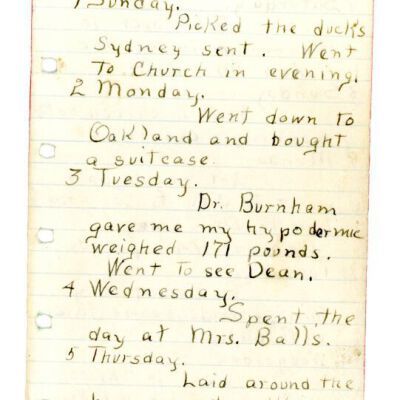 1 Sunday.
Picked the ducks
Sydney sent. Went
To Church in evening.
2 Monday.
Went down to
Oakland and bought
a suitcase.
3 Tuesday.
Dr. Burnham
gave me my hypodermic
weighed 171 pounds.
Went To see Dean.
4 Wednesday.
Spent the
day at Mrs. Balls.
5 Thursday.
Laid around the